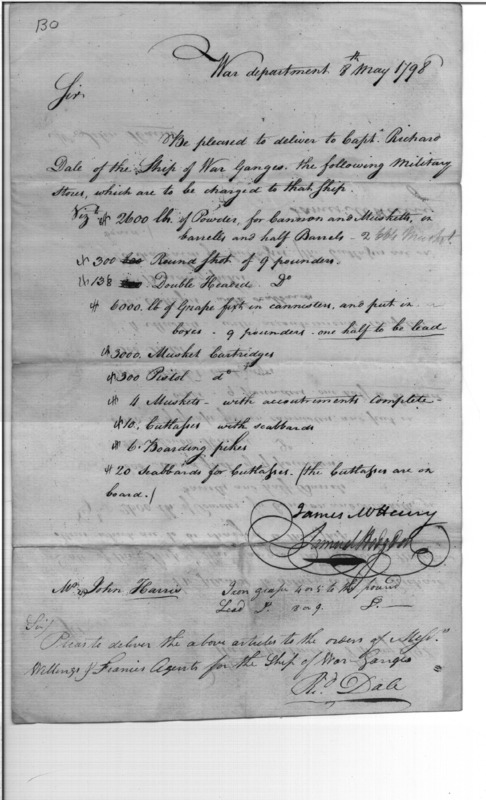 BO
War department 8th May 1798
Sir
Be pleased to deliver to Capt. Richard
Dale of the Ship of War Ganges the following Military
Stores, which are to be charged to that Ship.
Viz. 2600 lb. of Powder, for Cannon and Musketts, in
barrells and half Barrels -
300 Round Shot of 9 pounders.
138 Double Headed Do
6000 lb of Grape fixt in cannisters, and put in
boxes - 9 pounders - one half to be lead
3000 Musket Cartridges
300 Pistol do
4 Muskets - with accoutrements complete -
10. Cuttasses with scabbards
6 Boarding pikes
20 scabbards for Cuttasses. /the Cuttasses are on
board./
James McHenry
Samuel Hodgdon
Mr. John Harris Iron grape 4 or 5 to the pound
Lead Do. 8 or 9. Do. -
Sir/
Pleas to deliver the above articles to the orders of Messrs.
Willings & Francis Agents for the Ship of War Ganges
Rd. Dale